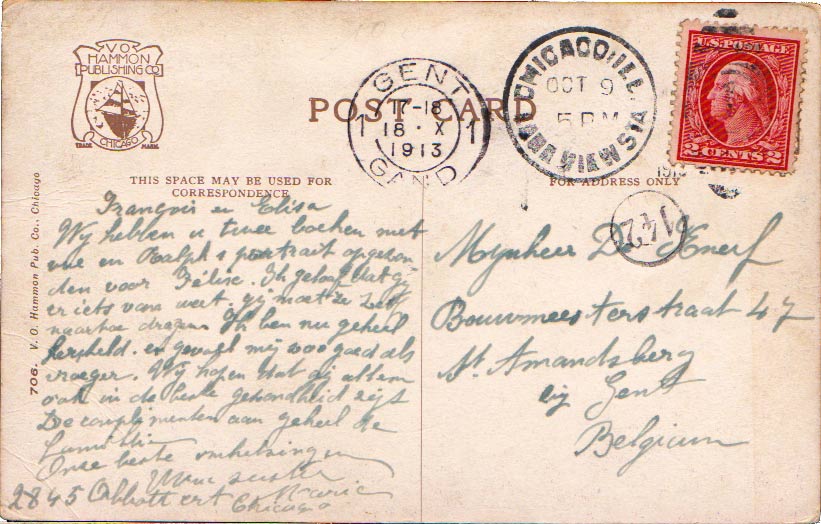 V O
HAMMON
PUBLISHING CO
CHICAGO
TRADE MARK
POST CARD
GENT
17-18
1 18 · X 1
1913
GAND
CHICAGO, ILL.
OCT 9
5 PM
U.S. POSTAGE
2 CENTS 2
THIS SPACE MAY BE USED FOR
CORRESPONDENCE
FOR ADDRESS ONLY
706. V. O. Hammon Pub. Co., Chicago
François en Elisa
Wij hebben u twee boeken met
en Ralph's portrait opgezon
den voor Félise. Ik geloof dat
er iets van weet. gij moet ze zelf
naartoe dragen. Ik ben nu geheel
hersteld. en gevoel mij zoo goed als
vroeger. Wij hopen dat gij allen
ook in de beste gezondheid zijt
De complimenten aan geheel de
familie
Onze beste omhelzingen
Uwe zuster
Marie
2845 Abbott crt Chicago
Mynheer D.
Bouwmeesterstraat 47
St. Amandsberg
bij Gent
Belgium